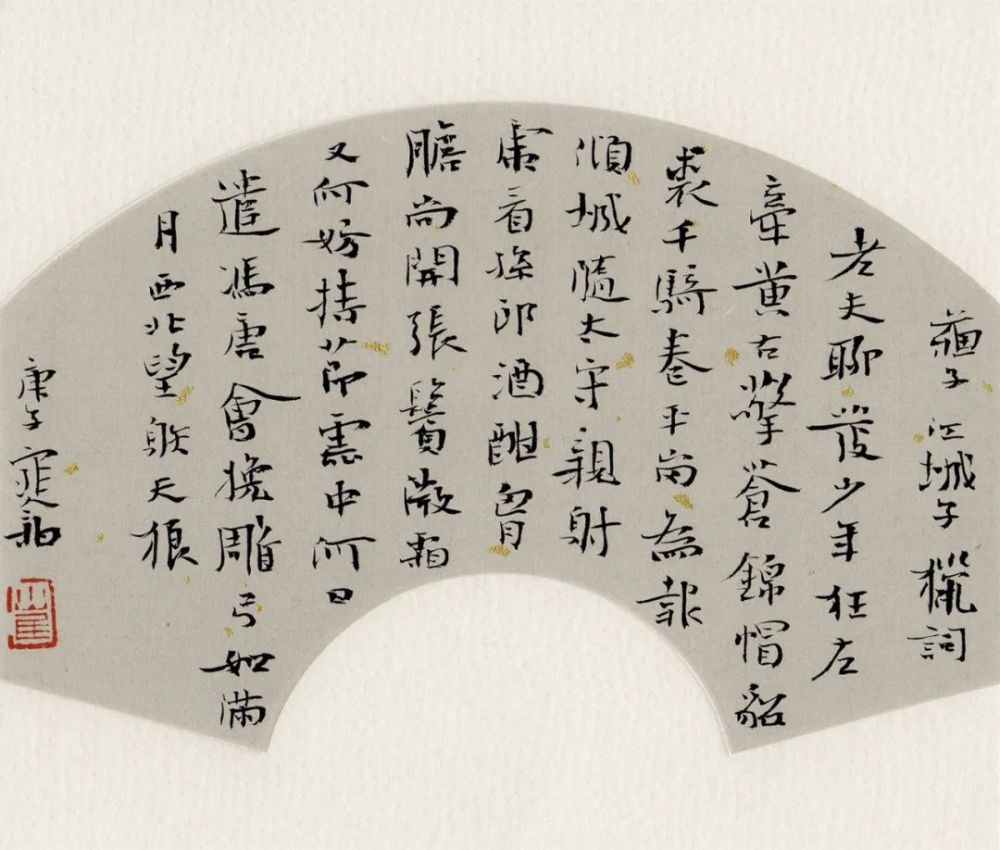 蘇子江城子獵詞
老夫聊發少年狂左
牽黃右擎蒼錦帽貂
裘千騎卷平岡為報
傾城隨太守親射
虎看孫郎酒酣胷
膽尚開張鬢微霜
又何妨持節雲中何日
遣馮唐會挽雕弓如滿
月西北望射天狼
庚子